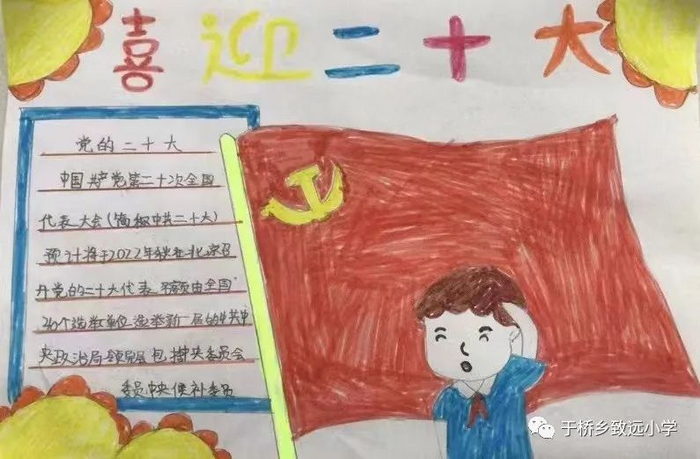 喜迎二十大
党的二十大
中国共产党第二十次全国
代表大会(简称中共二十大)
预计将于2022年 在北京召
开党的二十大代表 名额由全国
个选举单位选举新一届的中共中
央政治局 包括中央委员会
委员中央候补委员
于桥乡致远小学